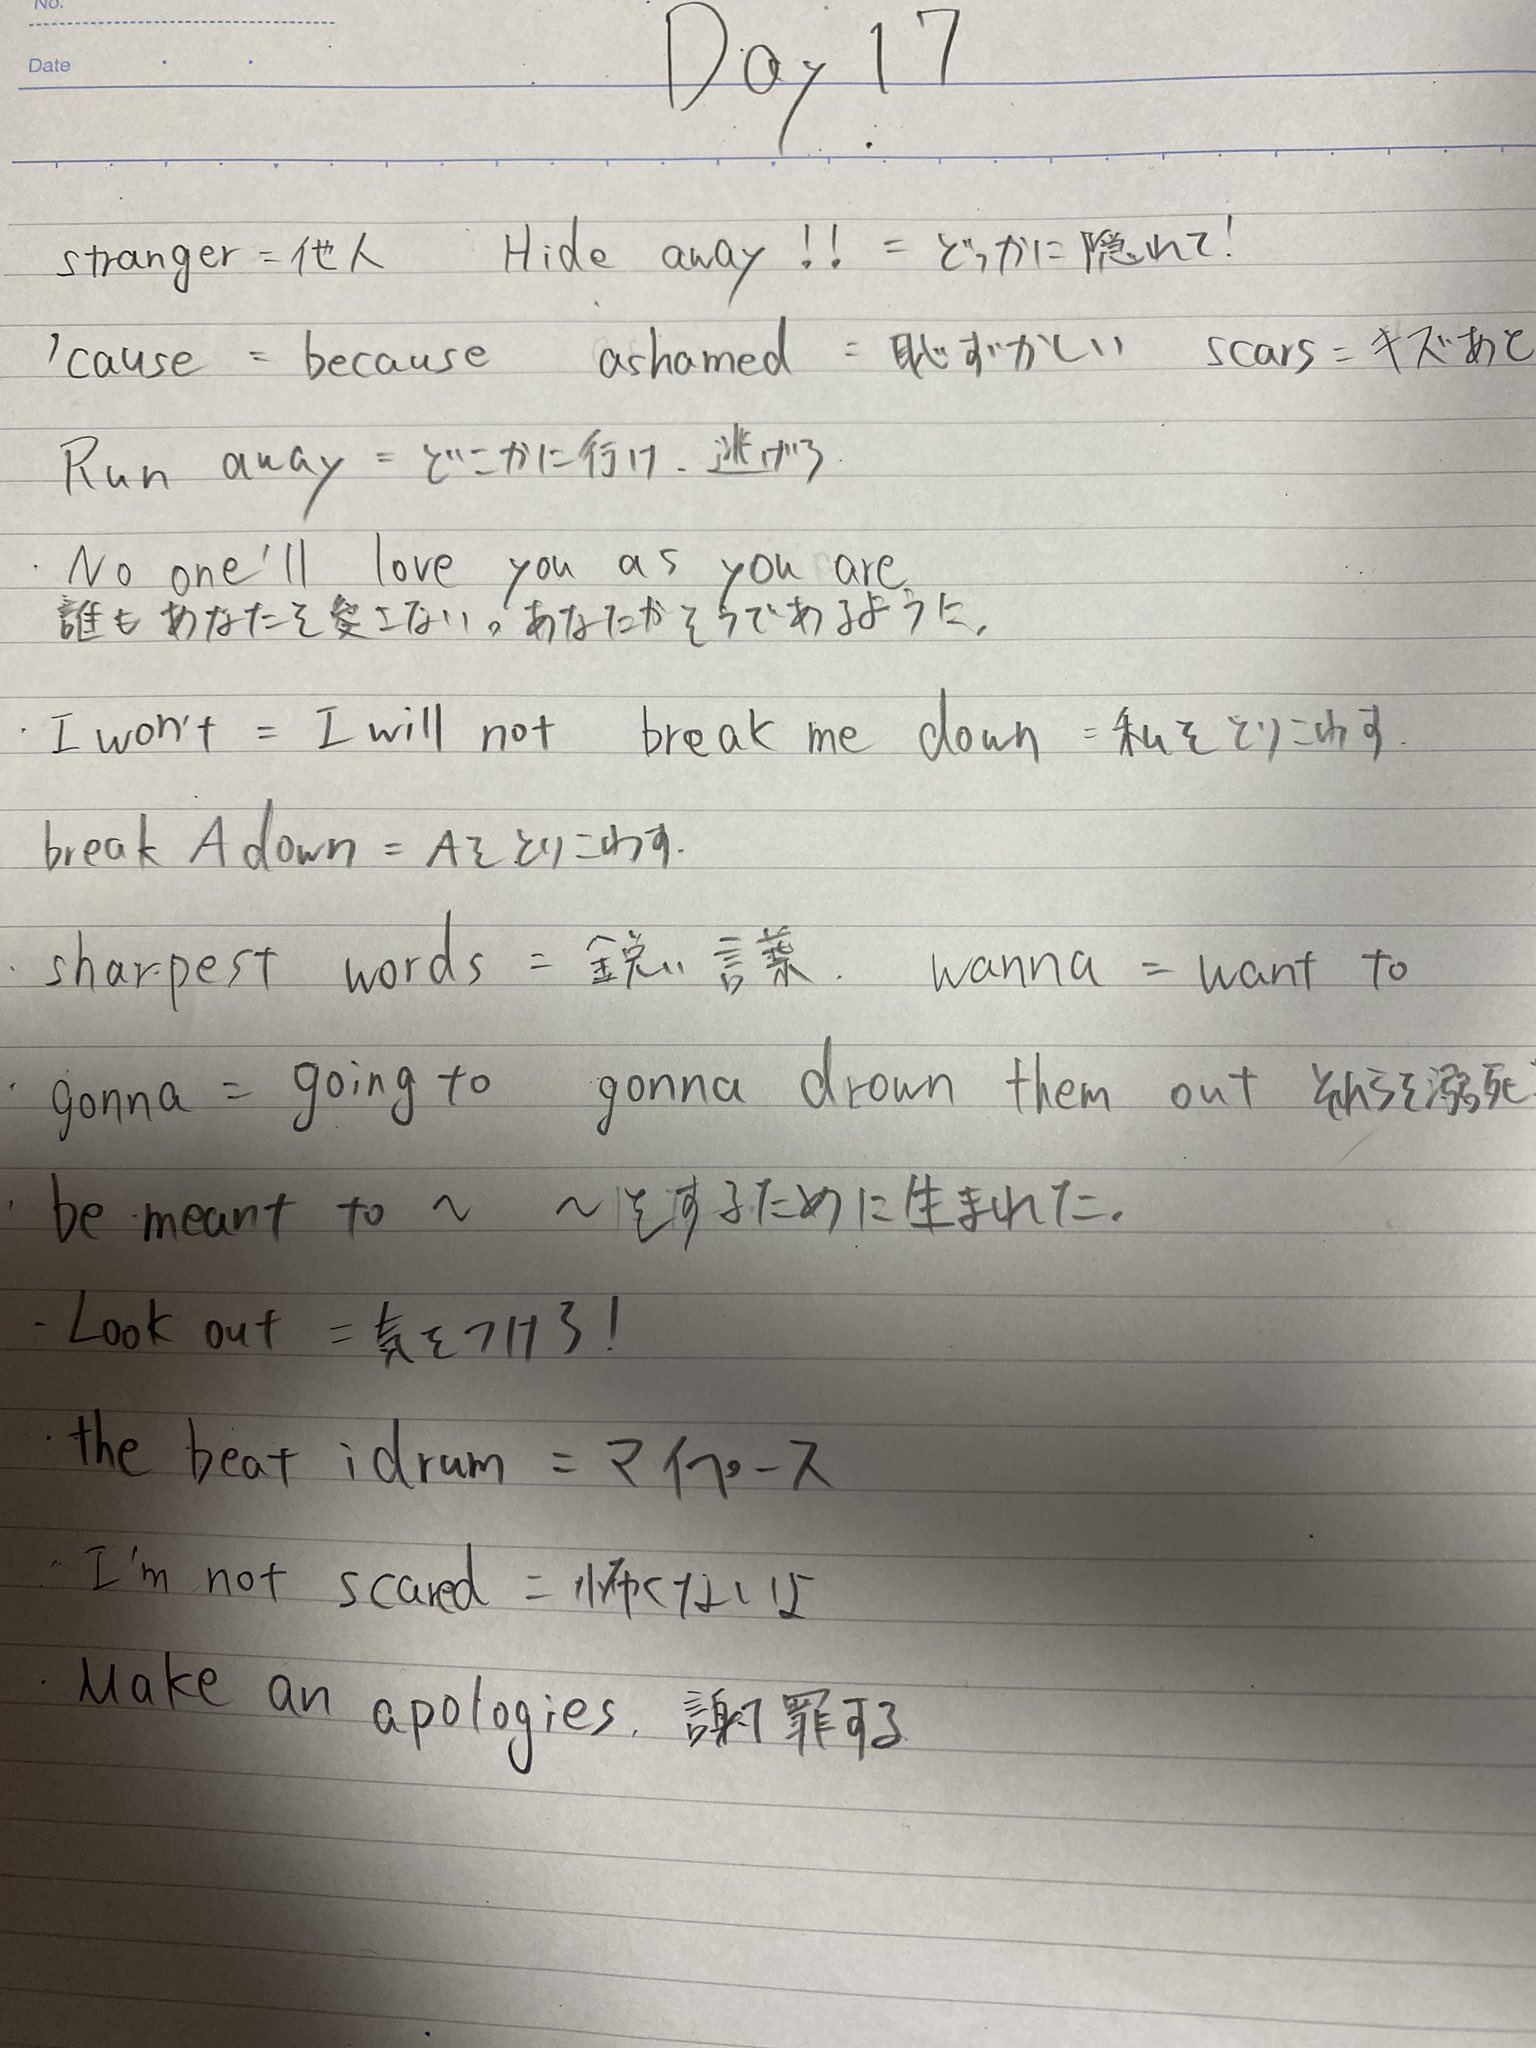 No.
Date
Day 17
stranger = 他人 Hide away!! = どっかに隠れて!
'cause = because ashamed = 恥ずかしい scars = キズあと
Run away = どこかに行け、逃げろ
・No one'll love you as you are
誰もあなたを愛さない。あなたがそうであるように。
・I won't = I will not break me down = 私をとりこわす.
break A down = Aをとりこわす.
・sharpest words = 鋭い言葉. wanna = want to
・gonna = going to gonna drown them out それらを溺死
・be meant to ~ ~をするために生まれた.
・Look out = 気をつけろ!
・the beat i drum = マイペース
・I'm not scared = 怖くないよ
・Make an apologies. 謝罪する